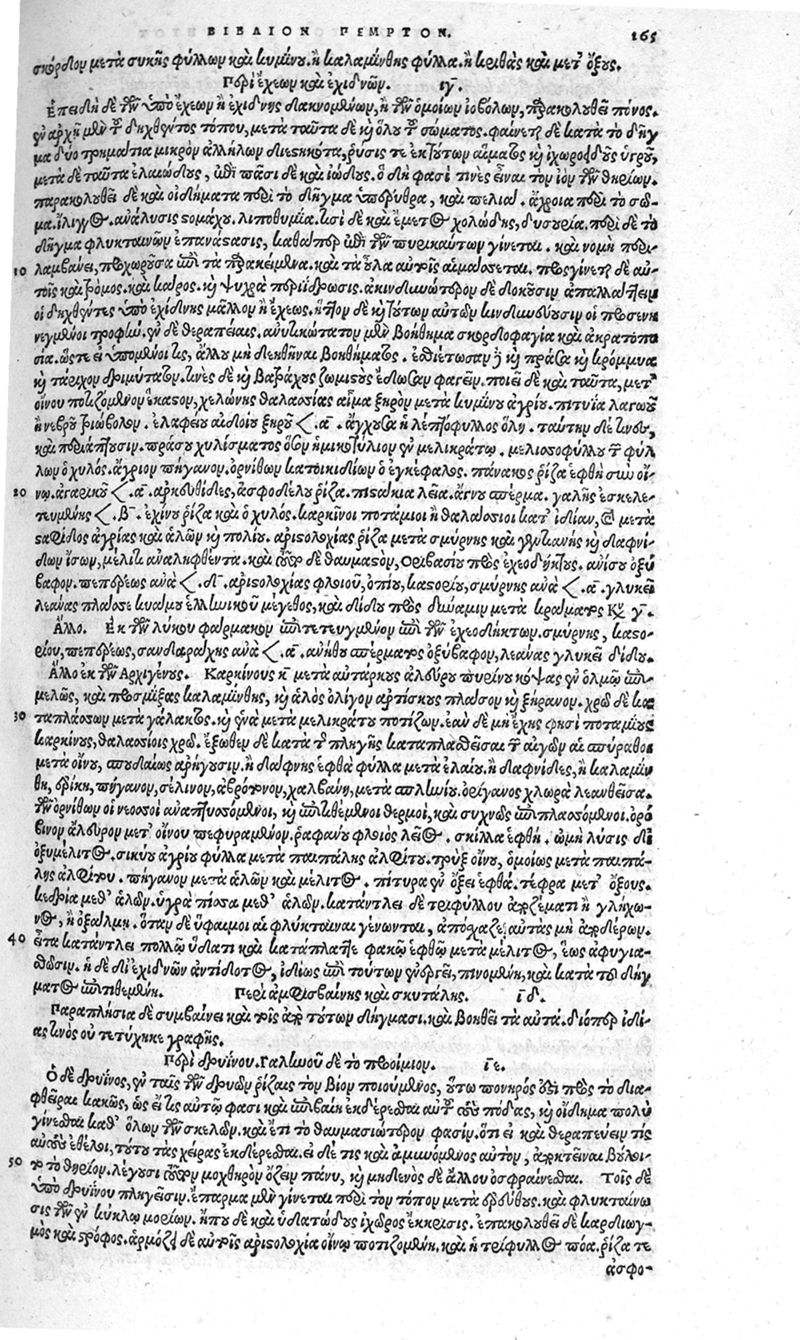 ΒΙΒΛΙΟΝ ΠΕΜΠΤΟΝ. 165
σκόρδου μετὰ συκῆς φύλλων καὶ κυμίνου. ἢ καλαμίνθης φύλλα. ἢ κριθὰς καὶ μετ' ὄξους.
Περὶ ἔχεων καὶ ἐχιδνῶν. ιγ.
Ἐπειδὴ δὲ τῶν ὑπὸ ἔχεων ἢ ἐχίδνης δακνομένων, ἢ τῶν ὁμοίων ἰοβόλων, παρακολουθεῖ πόνος.
ἐν ἀρχῇ μὲν τοῦ δηχθέντος τόπου, μετὰ ταῦτα δὲ καὶ ὅλου τοῦ σώματος. φαίνεται δὲ κατὰ τὸ δῆγ-
μα δύο τρημάτια μικρὸν ἀλλήλων διεστηκότα, ῥύσις τε ἐκ τούτων αἵματος καὶ ἰχωροειδοῦς ὑγροῦ,
μετὰ δὲ ταῦτα ἐλαιώδους, ἐπὶ πᾶσι δὲ καὶ ἰώδους. ὃ δή φασί τινες εἶναι τὸν ἰὸν τῶν θηρίων.
παρακολουθεῖ δὲ καὶ οἰδήματα περὶ τὸ δῆγμα ὑπέρυθρα, καὶ πελιά. ἄχροια περὶ τὸ σῶ-
μα. ἴλιγγος. ἀνάλυσις στομάχου. λιποθυμία. ἔστι δὲ καὶ ἔμετος χολώδης, δυσουρία. περὶ δὲ τὸ
δῆγμα φλυκταινῶν ἐπανάστασις, καθάπερ ἐπὶ τῶν πυρικαύτων γίνεται. καὶ νομὴ περι-
10 λαμβάνει, προχωροῦσα ἐπὶ τὰ παρακείμενα. καὶ τὰ οὖλα αὐτοῖς αἱμάσσεται. προσγίνεται δὲ αὐ-
τοῖς καὶ τρόμος. καὶ κάρος. καὶ ψυχρὰ περιΐδρωσις. ἀκινδυνότερον δὲ δοκοῦσιν ἀπαλλάττειν
οἱ δηχθέντες ὑπὸ ἐχίδνης μᾶλλον ἢ ἔχεως. ἧττον δὲ καὶ τούτων αὐτῶν κινδυνεύουσιν οἱ προσενη-
νεγμένοι τροφήν. ἐν δὲ θεραπείαις. ἀνυτικώτατον μὲν βοήθημα σκορδοφαγία καὶ ἀκρατοπο-
σία. ὥστε εἰ ὑπομένοι τις, ἄλλου μὴ δεηθῆναι βοηθήματος. ἐσθιέτωσαν δὲ καὶ πράσα καὶ κρόμμυα
καὶ τάριχον δριμύτατον. τινὲς δὲ καὶ βατράχους ζωμιστοὺς ἔδωκαν φαγεῖν. ποιεῖ δὲ καὶ ταῦτα, μετ'
οἴνου ποτιζομένον ἕκαστον, χελώνης θαλασσίας αἷμα ξηρὸν μετὰ κυμίνου ἀγρίου. πιτυΐα λαγωοῦ
ἢ νεβροῦ τριώβολον. ἐλαφείου αἰδοίου ξηροῦ <. α. ἄγχουσα ἡ λεπτόφυλλος ὅλη. ταύτην δέ τινες,
καὶ περιάπτουσιν. πράσου χυλίσματος ὅσον ἡμικοτύλιον ἐν μελικράτῳ. μελισσοφύλλου τοῦ φύλ-
λων ὁ χυλός. ἄγριον πήγανον. ὀρνίθων κατοικιδίων ὁ ἐγκέφαλος. πάνακος ῥίζα ἑφθὴ σὺν οἴ-
20 νῳ. ἀγαρικοῦ <. α. ἀρκευθίδες, ἀσφοδέλου ῥίζα. πιστάκια λεῖα. ἄγνου σπέρμα. γαλῆς ἐσκελε-
τευμένης <. β. ἐχίνου ῥίζα καὶ ὁ χυλός. καρκῖνοι ποτάμιοι ἢ θαλάσσιοι κατ' ἰδίαν, ἢ μετὰ
σταφίδος ἀγρίας καὶ ἁλῶν καὶ πολίου. ἀριστολοχίας ῥίζα μετὰ σμύρνης καὶ γεντιανῆς καὶ δαφνί-
δων ἴσων, μέλιτι ἀναληφθέντα. καὶ τοῦτο δὲ θαυμαστόν, Ὀριβασίου πρὸς ἐχεοδήκτους. ἀνίσου ὀξύ-
βαφον. πεπέρεως ἀνὰ <. δ. ἀριστολοχίας φλοιοῦ, ὀπίου, καστορίου, σμύρνης ἀνὰ <. α. γλυκεῖ
λεάνας πλάσσε κυάμου ἑλληνικοῦ μέγεθος, καὶ δίδου πρὸς δύναμιν μετὰ κράματος Κυ. γ.
Ἄλλο. Ἐκ τῶν λύκου φαρμάκων ἐπιτετευγμένον ἐπὶ τῶν ἐχεοδήκτων. σμύρνης, καστο-
ρίου, πεπέρεως, σανδαράχης ἀνὰ <. α. ἀνήθου σπέρματος ὀξύβαφον, λεάνας γλυκεῖ δίδου.
Ἄλλο ἐκ τῶν Ἀρχιγένους. Καρκίνους κ μετὰ αὐτάρκους ἀλεύρου πυρίνου κόψας ἐν ὅλμῳ ἐπι-
μελῶς, καὶ προσμίξας καλαμίνθης, καὶ ἁλὸς ὀλίγον ἀρτίσκους πλάσον καὶ ξήρανον. χρῶ δὲ κα-
30 ταπλάσσων μετὰ γάλακτος. καὶ ἕνα μετὰ μελικράτου ποτίζων. ἐὰν δὲ μὴ ἔχῃς φησὶ ποταμίους
καρκίνους, θαλασσίοις χρῶ. ἔξωθεν δὲ κατὰ τῆς πληγῆς καταπλασθεῖσαι τῶν αἰγῶν αἱ σπύραθοι
μετὰ οἴνου, σπουδαίως ἀρήγουσιν. ἢ δάφνης ἑφθὰ φύλλα μετὰ ἐλαίου. ἢ δαφνίδες, ἢ καλαμίν-
θη, ἐρίκη, πήγανον, σέλινον, ἀβρότονον, χαλβάνη, μετὰ ἀπλύτου. ὀρίγανος χλωρὰ λεανθεῖσα.
τῶν ὀρνίθων οἱ νεοσσοὶ ἀναπτυσσόμενοι, καὶ ἐπιτιθέμενοι θερμοί, καὶ συχνῶς ἐπιπλασσόμενοι. ὀρό-
βινον ἄλευρον μετ' οἴνου πεφυραμένον. ῥαφάνου φλοιὸς λεῖος. σκίλλα ἑφθή. ὠμὴ λύσις δι'
ὀξυμέλιτος. σικύου ἀγρίου φύλλα μετὰ παιπάλης ἀλφίτου. τρὺξ οἴνου, ὁμοίως μετὰ παιπά-
λης ἀλφίτου. πήγανον μετὰ ἁλῶν καὶ μέλιτος. πίτυρα ἐν ὄξει ἑφθά. τέφρα μετ' ὄξους.
κεδρία μεθ' ἁλῶν. ὑγρὰ πίσσα μεθ' ἁλῶν. κατάντλει δὲ τριφύλλου ἀφεζέματι ἢ γλήχω-
νος, ἢ ὀξάλμῃ. ὅταν δὲ ὕφαιμοι αἱ φλύκταιναι γένωνται, ἀπόχαζε αὐτὰς μὴ ἀποδέρων.
40 εἶτα κατάντλει πολλῷ ὕδατι καὶ κατάπλαττε φακῷ ἑφθῷ μετὰ μέλιτος, ἕως ἀφυγια-
σθῶσιν. ἡ δὲ δι' ἐχιδνῶν ἀντίδοτος, ἰδίως ἐπὶ τούτων ἐνεργεῖ, πινομένη, καὶ κατὰ τοῦ δήγ-
ματος ἐπιτιθεμένη. Περὶ ἀμφισβαίνης καὶ σκυτάλης. ιδ.
Παραπλήσια δὲ συμβαίνει καὶ τοῖς ἀπὸ τούτων δήγμασι. καὶ βοηθεῖ τὰ αὐτά. διόπερ ἰδί-
ας τινὸς οὐ τετύχηκε γραφῆς.
Περὶ δρυΐνου. Γαληνοῦ δὲ τὸ προοίμιον. ιε.
Ὁ δὲ δρυΐνος, ἐν ταῖς τῶν δρυῶν ῥίζαις τὸν βίον ποιούμενος, οὕτω πονηρός ἐστι πρὸς τὸ δια-
φθεῖραι κακῶς, ὡς εἴ τις αὐτῷ φασι καὶ ἐπιβαίη ἐκδέρεσθαι αὐτοῦ τοὺς πόδας, καὶ οἴδημα πολὺ
γίνεσθαι καθ' ὅλων τῶν σκελῶν. καὶ ἔτι τὸ θαυμασιώτερον φασίν. ὅτι εἰ καὶ θεραπεύειν τις
αὐτοὺς ἐθέλοι, τούτου τὰς χεῖρας ἐκδέρεσθαι. εἰ δέ τις καὶ ἀμυνόμενος αὐτόν, ἀποκτεῖναι βύλοι-
50 το τὸ θηρίον. λέγουσι τοῦτον μοχθηρὸν ὄζειν πάνυ, καὶ μηδενὸς δὲ ἄλλου ὀσφραίνεσθαι. Τοῖς δὲ
ὑπὸ δρυΐνου πληγεῖσιν. ἔπαρμα μὲν γίνεται περὶ τὸν τόπον μετὰ ἐρεύθους. καὶ φλυκταίνω-
σις τῶν ἐν κύκλῳ μορίων. ἤπου δὲ καὶ ὑδατώδους ἰχῶρος ἔκκρισις. ἐπακολουθεῖ δὲ καρδιωγ-
μὸς καὶ στρόφος. ἁρμόζει δὲ αὐτοῖς ἀριστολοχία οἴνῳ ποτιζομένη. καὶ ἡ τρίφυλλος πόα. ῥίζα τε
ἀσφο-